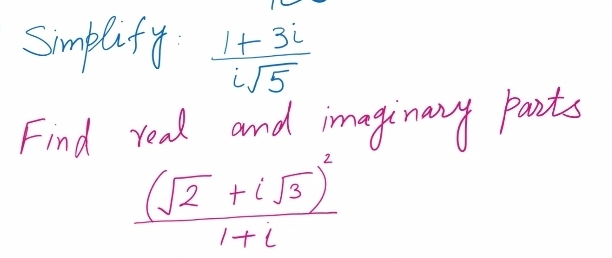 Simplify: (1 + 3i)/(i√5)
Find real and imaginary parts
(√2 + i√3)²/(1 + i)